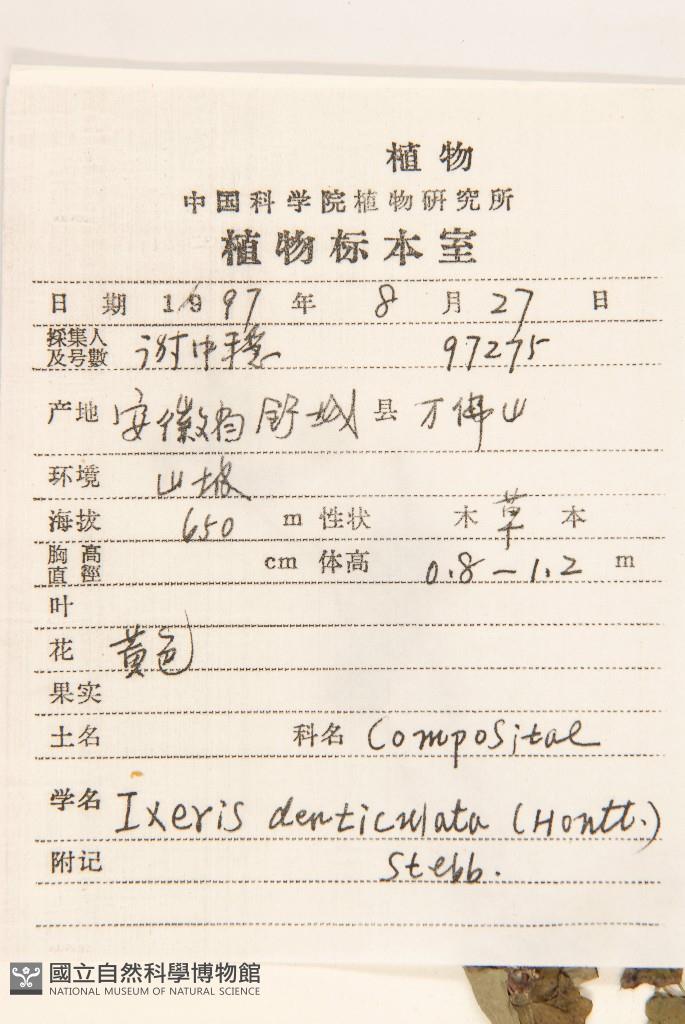 植物
中国科学院植物研究所
植物标本室
日期 1997 年 8 月 27 日
採集人及号數 谢中稳 97275
产地 安徽省舒城县 万佛山
环境 山坡
海拔 650 m 性状 木 草 本
胸高直徑 cm 体高 0.8-1.2 m
叶
花 黄色
果实
土名 科名 Compositae
学名 Ixeris denticulata (Houtt.)
附记 Stebb.
國立自然科學博物館
NATIONAL MUSEUM OF NATURAL SCIENCE